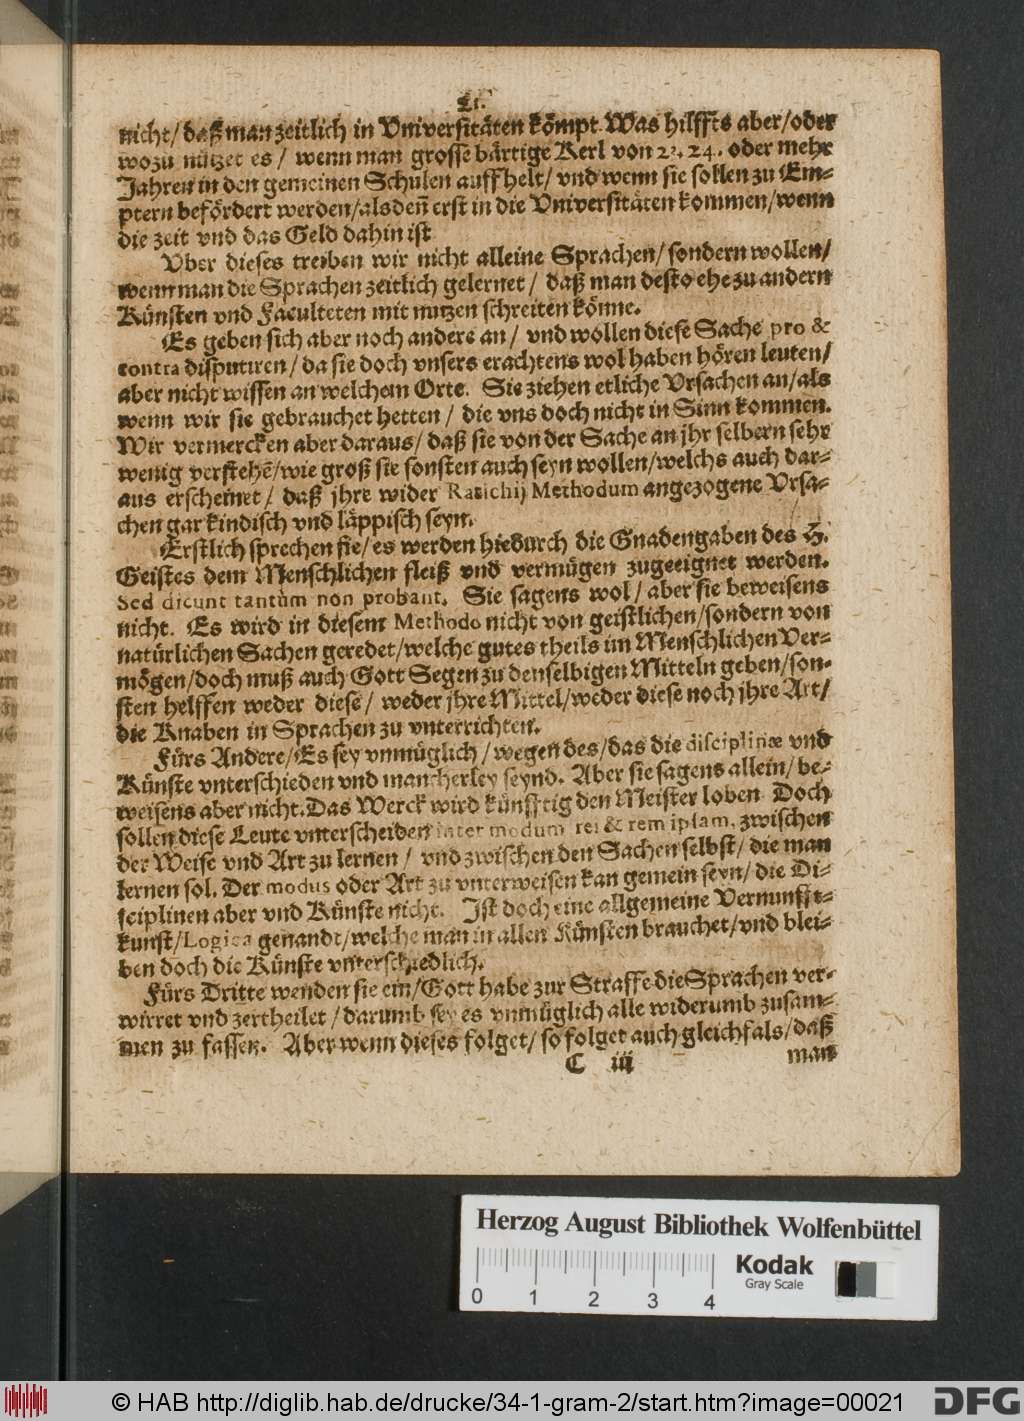 21.
nicht/ daß man zeitlich in Vniversitäten kömpt. Was hilffts aber/ oder
wozu nützet es/ wenn man grosse bärtige Kerl von 23. 24. oder mehr
Jahren in den gemeinen Schulen auffhelt/ vnd wenn sie sollen zu Em-
ptern befördert werden/ alsdeñ erst in die Vniversitäten kommen/ wenn
die zeit vnd das Geld dahin ist
Vber dieses treiben wir nicht alleine Sprachen/ sondern wollen/
wenn man die Sprachen zeitlich gelernet/ daß man desto ehe zu andern
Künsten vnd Faculteten mit nutzen schreiten könne.
Es geben sich aber noch andere an/ vnd wollen diese Sache pro &
contra disputiren/ da sie doch vnsers erachtens wol haben hören leuten/
aber nicht wissen an welchem Orte. Sie ziehen etliche Vrsachen an/ als
wenn wir sie gebrauchet hetten/ die vns doch nicht in Sinn kommen.
Wir vermercken aber daraus/ daß sie von der Sache an jhr selbern sehr
wenig verstehē/ wie groß sie sonsten auch seyn wollen/ welchs auch dar-
aus erscheinet/ daß jhre wider Ratichij Methodum angezogene Vrsa-
chen gar kindisch vnd läppisch seyn.
Erstlich sprechen sie/ es werden hiedurch die Gnadengaben des H.
Geistes dem Menschlichen fleiß vnd vermügen zugeeignet werden.
Sed dicunt tantùm non probant. Sie sagens wol/ aber sie beweisens
nicht. Es wird in diesem Methodo nicht von geistlichen/ sondern von
natürlichen Sachen geredet/ welche gutes theils im Menschlichen Ver-
mögen/ doch muß auch Gott Segen zu denselbigen Mitteln geben/ son-
sten helffen weder diese/ weder jhre Mittel/ weder diese noch jhre Art/
die Knaben in Sprachen zu vnterrichten.
Fürs Andere/ Es sey vnmüglich/ wegen des/ das die disciplinæ vnd
Künste vnterschieden vnd mancherley seynd. Aber sie sagens allein/ be-
weisens aber nicht. Das Werck wird künfftig den Meister loben Doch
sollen diese Leute vnterscheiden inter modum rei & rem ipsam, zwischen
der Weise vnd Art zu lernen/ vnd zwischen den Sachen selbst/ die man
lernen sol. Der modus oder Art zu vnterweisen kan gemein seyn/ die Di-
sciplinen aber vnd Künste nicht. Ist doch eine allgemeine Vernunfft-
kunst/ Logica genandt/ welche man in allen Künsten brauchet/ vnd blei-
ben doch die Künste vnterschiedlich.
Fürs Dritte wenden sie ein/ Gott habe zur Straffe die Sprachen ver-
wirret vnd zertheilet/ darumb sey es vnmüglich alle widerumb zusam-
men zu fassen. Aber wenn dieses folget/ so folget auch gleichfals/ daß
C iij
man
Herzog August Bibliothek Wolfenbüttel
Kodak
Gray Scale
0 1 2 3 4
© HAB http://diglib.hab.de/drucke/34-1-gram-2/start.htm?image=00021
DFG